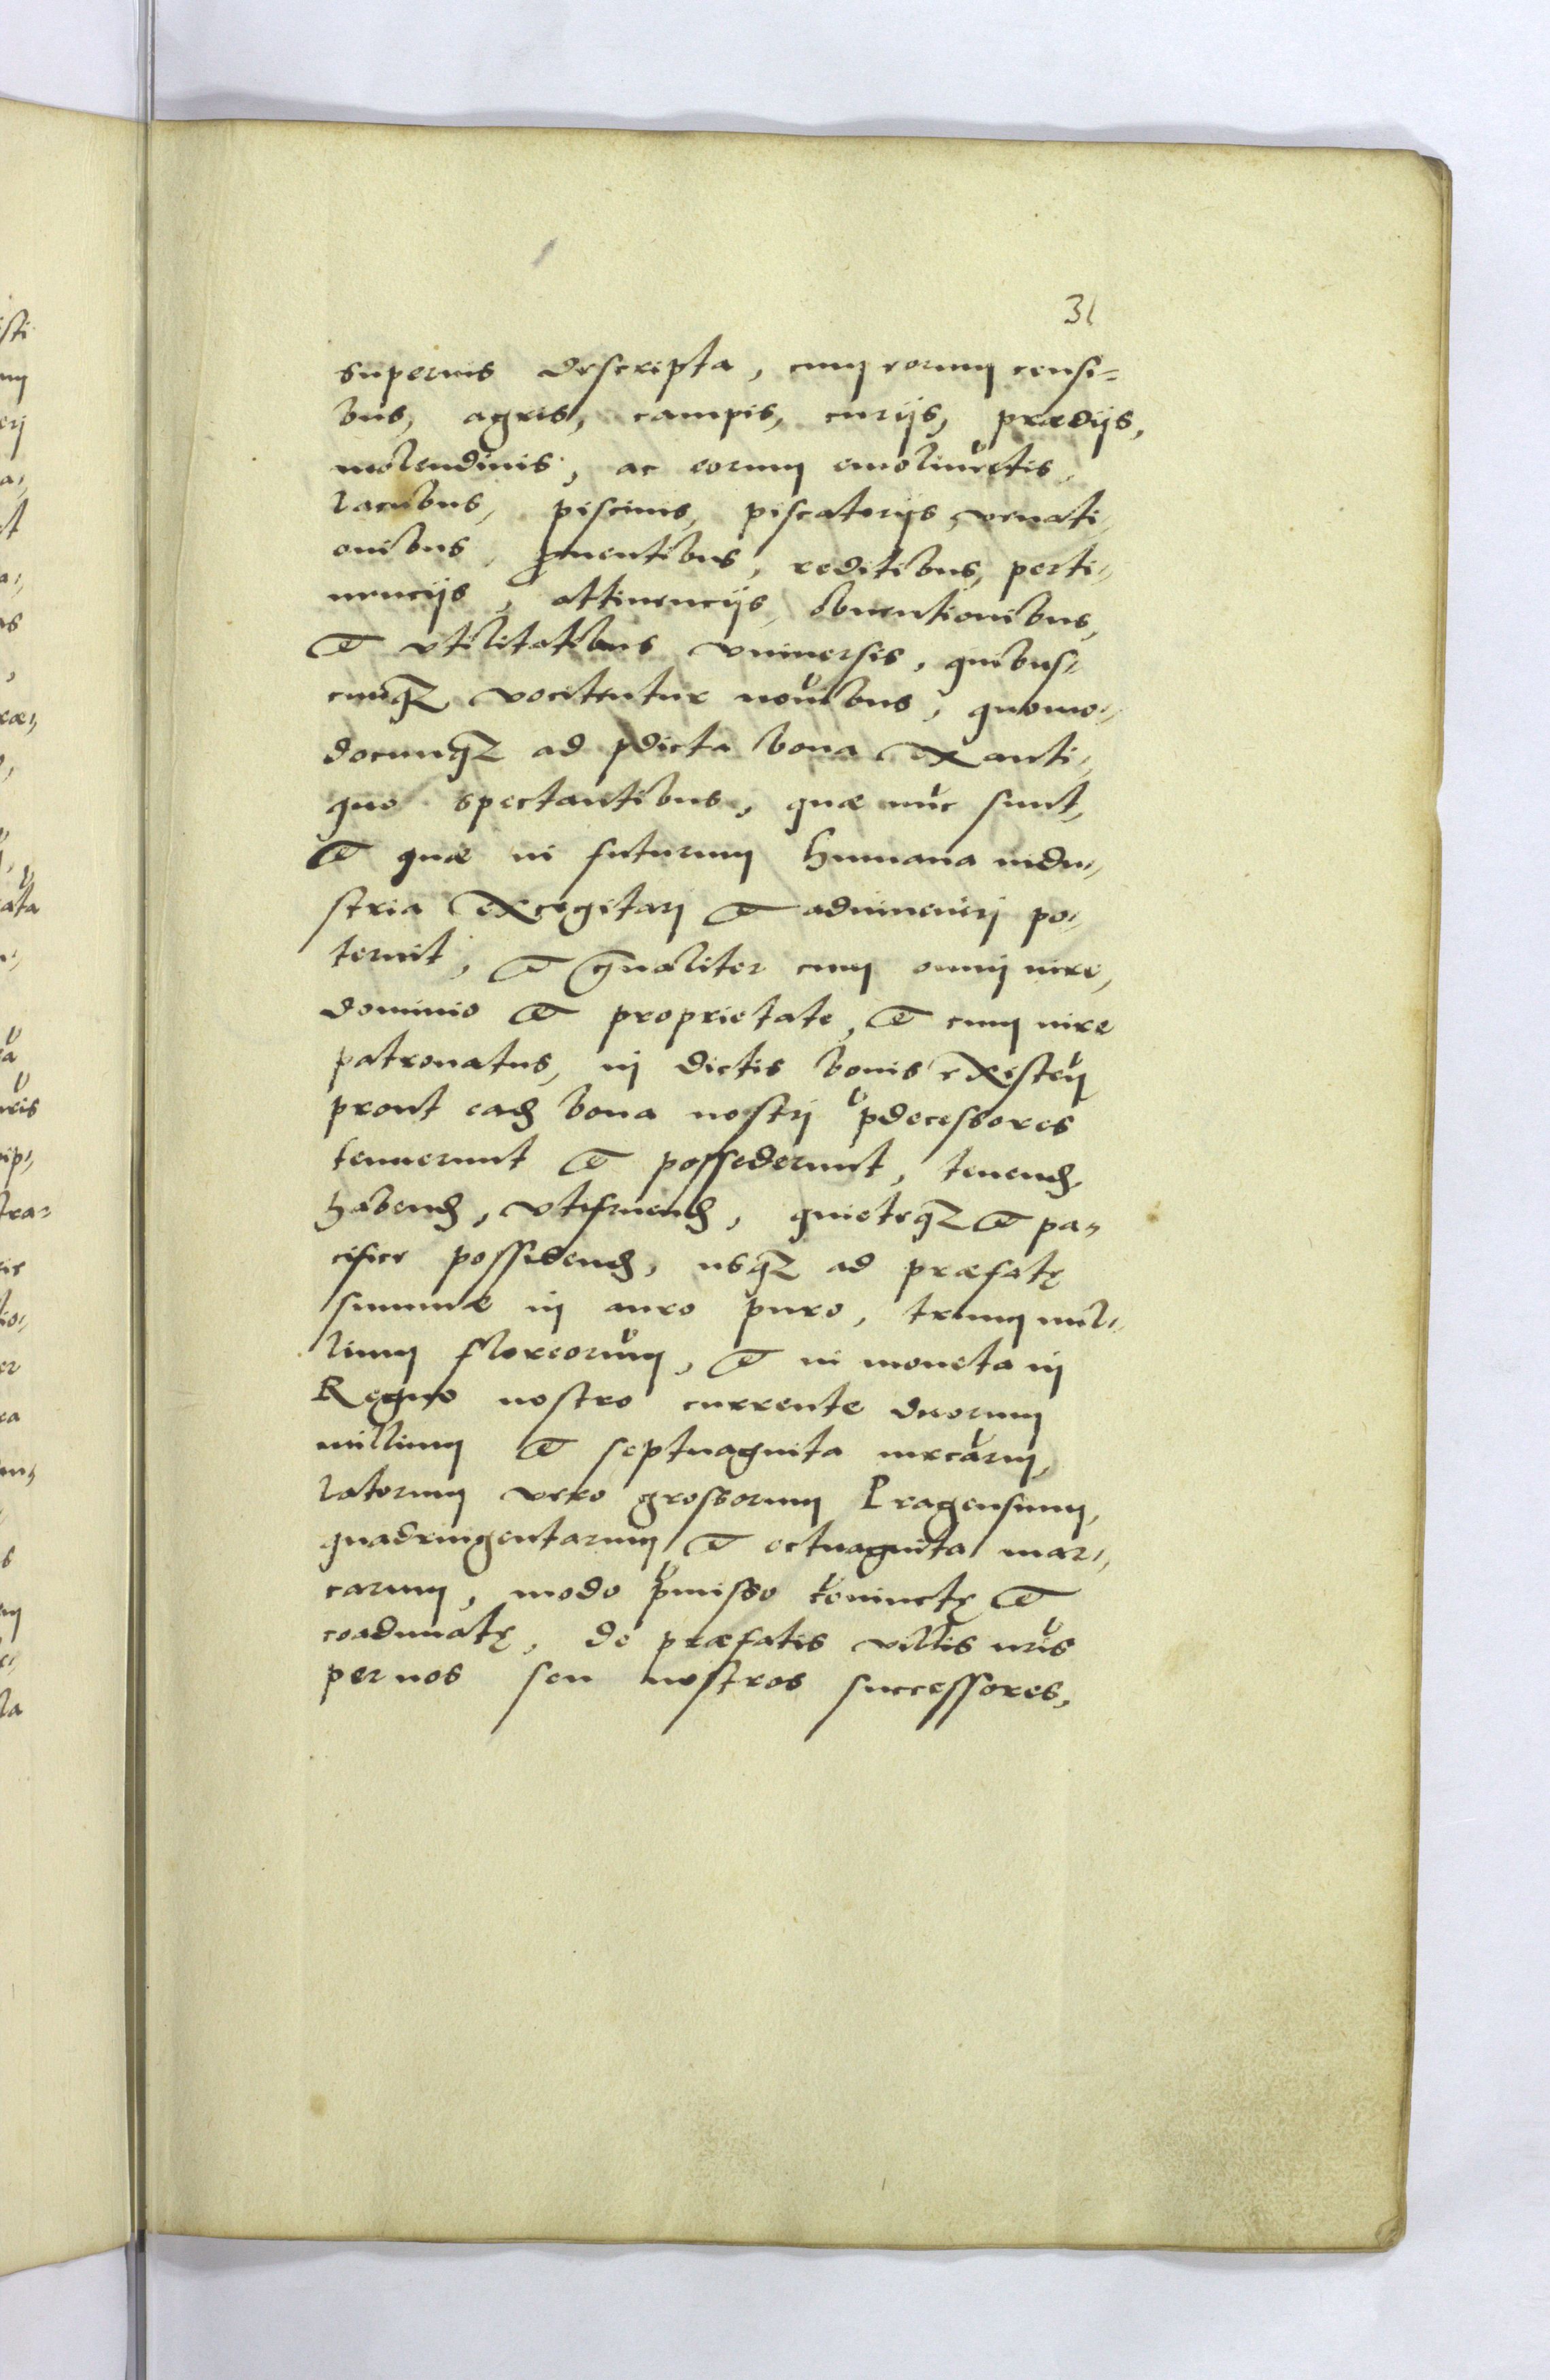 31
superius descripta, cum eorum censi=
bus, agris, campis, curijs, prædijs,
molendinis, ac eorum emolimētis,
lacubus, piscinis, piscatorijs, venati„
onibus, ꝓuentibus, reditibus, perti„
nencijs, attinencijs, obuentionibus,
et vtilitatibus vniuersis, quibus„
cunqꝫ vocitentur noībus, quomo„
docunqꝫ ad p̄dicta bona ex anti„
quo spectantibus, quæ nūc sunt,
et quæ in futurum humana indu„
stria excogitarj et adinuenirj po„
terint, et gn̄aliter cum omnj iure,
dominio et proprietate, et cum iure
patronatus, in dictis bonis existeñ
prout eađ bona nostrj p̄decessores
tenuerunt et possederunt, tenenđ
habenđ, vtifruenđ, quieteqꝫ et pa„
cifice possidenđ, usqꝫ ad præfatę
summæ in auro puro, trium mil„
lium floreorūm, et in moneta in
Regno nostro currente duorum
millium et septuaginta mrcārum,
latorum vero grossorum Pragensium,
quadringentarum et octuaginta mar„
carum, modo p̄misso cōniunctę et
coadunatę, de præfatis villis nr̄is
per nos seu nostros successores,
sti
um
erj
a„
t
a„
s
,
ræ„
ata
ris
ip„
tra=
ric
tio„
er
ra
la